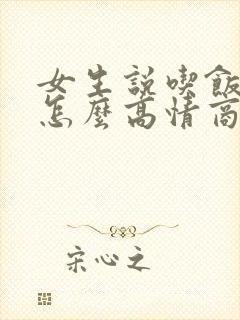 女生説喫飯
怎麼高情商
宋心之